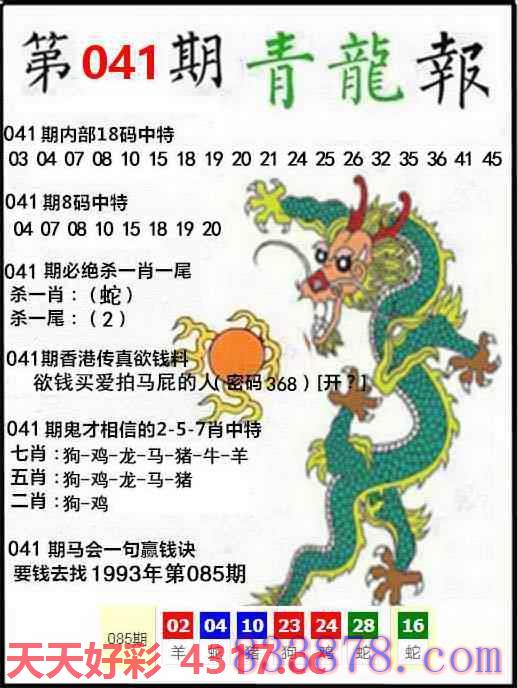 第041期 青龍報
041期内部18码中特
03 04 07 08 10 15 18 19 20 21 24 25 26 32 35 36 41 45
041期8码中特
04 07 08 10 15 18 19 20
041 期必绝杀一肖一尾
杀一肖：（蛇）
杀一尾：（2）
041期香港传真欲钱料
欲钱买爱拍马屁的人(密码368)[开？]
041期鬼才相信的2-5-7肖中特
七肖：狗-鸡-龙-马-猪-牛-羊
五肖：狗-鸡-龙-马-猪
二肖：狗-鸡
041期马会一句赢钱诀
要钱去找1993年第085期
085期 02 04 10 23 24 28 16
羊 蛇 猪 狗 鸡 蛇 蛇
天天好彩 4317.cc
838878.com